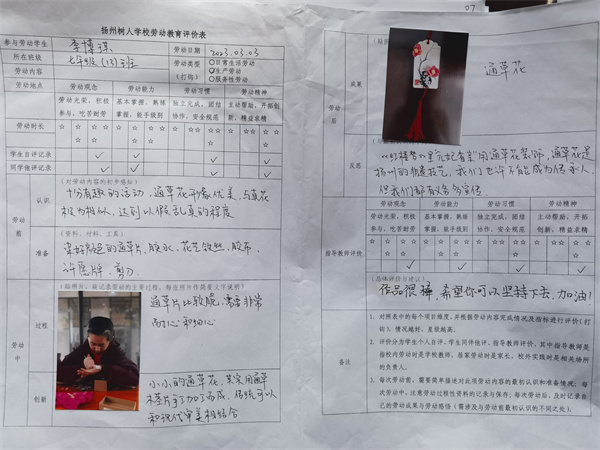 07
扬州树人学校劳动教育评价表
参与劳动学生
李博琪
劳动日期
2023.03.03
所在班级
七年级(13)班
劳动类型
(打钩)
○日常生活劳动
生产劳动
○服务性劳动
劳动内容
劳动地点
劳动观念
劳动能力
劳动习惯
劳动精神
劳动光荣、积极
参与、吃苦耐劳
基本掌握、熟练
掌握、能手级别
独立完成、团结
协作、安全规范
主动帮验、开拓
创新、精益求精
劳动时长
☆ ☆☆ ☆☆☆ ☆ ☆☆ ☆☆☆ ☆ ☆☆ ☆☆☆ ☆ ☆☆ ☆☆☆
学生自评记录
✓ ✓ ✓ ✓
同学他评记录
✓ ✓ ✓ ✓
劳动前
认识
(对劳动内容的初步感知)
十分有趣的活动,通草花形象优美,与真花
极为相似,达到以假乱真的程度
准备
(资料、材料、工具)
染好颜色的通草片、胶水、花艺铁丝、胶布、
许愿牌、剪刀
劳动中
过程
(贴照片,能记录劳动的主要过程,每张照片作简要文字说明)
通草片比较脆,需要非常
耐心和细心
创新
小小的通草花,其实用通草
木茎片手工加工而成,传统可以
和现代审美相结合
劳动后
成果
通草花
反思
《红楼梦》里元妃省亲用通草花装饰,通草花是
扬州的非遗技艺,我们也许不能成为传承人,
但我们都有义务宣传
指导教师评价
劳动观念
劳动能力
劳动习惯
劳动精神
劳动光荣、积极
参与、吃苦耐劳
基本掌握、熟练
掌握、能手级别
独立完成、团结
协作、安全规范
主动帮验、开拓
创新、精益求精
☆ ☆☆ ☆☆☆ ☆ ☆☆ ☆☆☆ ☆ ☆☆ ☆☆☆ ☆ ☆☆ ☆☆☆
✓ ✓ ✓ ✓
(总体评价与建议)
作品很棒,希望你可以坚持下去,加油!
备注
1. 对照表中的每个项目维度,并根据劳动内容完成情况及指标进行评价(打
钩)。情况越好,星级越高。
2. 评价分为学生个人自评、学生同伴他评、指导教师评价,其中指导教师是
指校内劳动时是学校教师,居家劳动时是家长,校外实践时是相关场所
的负责人。
3. 每次劳动前,需要简单描述对此项劳动内容的最初认识和准备情况;每
次劳动中,注意劳动过程性资料的记录与保存;每次劳动后,及时记录自
己的劳动成果与劳动感悟(需涉及与劳动前最初认识的不同之处)。